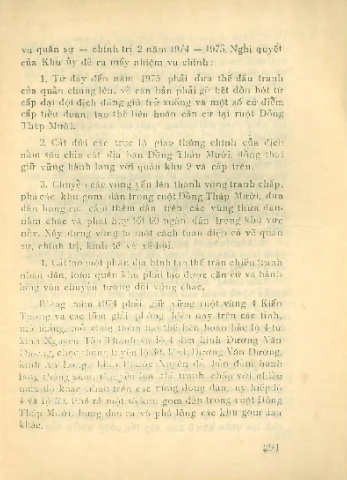 vụ quân sự — chính trị 2 năm 1974 — 1975. Nghị quyết
của Khu ủy đề ra mấy nhiệm vụ chính:
1. Từ đây đến năm 1975 phải đưa thế đấu tranh
của quần chúng lên, về căn bản phải gỡ hết đồn bót từ
cấp đại đội địch đóng giữ trở xuống và một số cứ điểm
cấp tiểu đoàn, tạo thế liên hoàn căn cứ tại ruột Đồng
Tháp Mười.
2. Cắt đứt các trục lộ giao thông chính của địch
nằm sâu chia cắt địa bàn Đồng Tháp Mười, đồng thời
giữ vững hành lang với quân khu 9 và cấp trên.
3. Chuyển các vùng yếu lên thành vùng tranh chấp,
phá các khu gom dân trong ruột Đồng Tháp Mười, đưa
dân bung ra, cắm thêm dân trên các vùng
nắm chắc và phát huy tốt 60 ngàn dân trong khu vực
này. Xây dựng vùng ta một cách toàn diện cả về quân
sự, chính trị, kinh tế và xã hội.
4. Cải tạo một phần địa hình tạo thế trận chiến tranh
nhân dân, toàn quân khu phải tạo được căn cứ và hành
lang vận chuyển tương đối vững chắc.
Riêng năm 1974 phải giữ vững ruột vùng 4 Kiến
Tường và các lõm giải phóng hiện nay trên các tỉnh,
mở mảng, mở vùng thêm tạo thế liên hoàn bắc lộ 4 từ
kinh Nguyễn Tấn Thành và lộ 4 đến kinh Dương Văn
Dương,
kinh An Long, Phước Xuyên để bảo đảm hành
lang thông suốt, chuyển lên thế tranh chấp với nhiều
mức độ khác nhau trên các vùng đông dân, uy hiếp lộ
4 và lộ 30. Phá rã một số khu gom dân trong ruột Đồng
Tháp Mười, bung dân ra và phá lỏng các khu gom dân
khác.
291